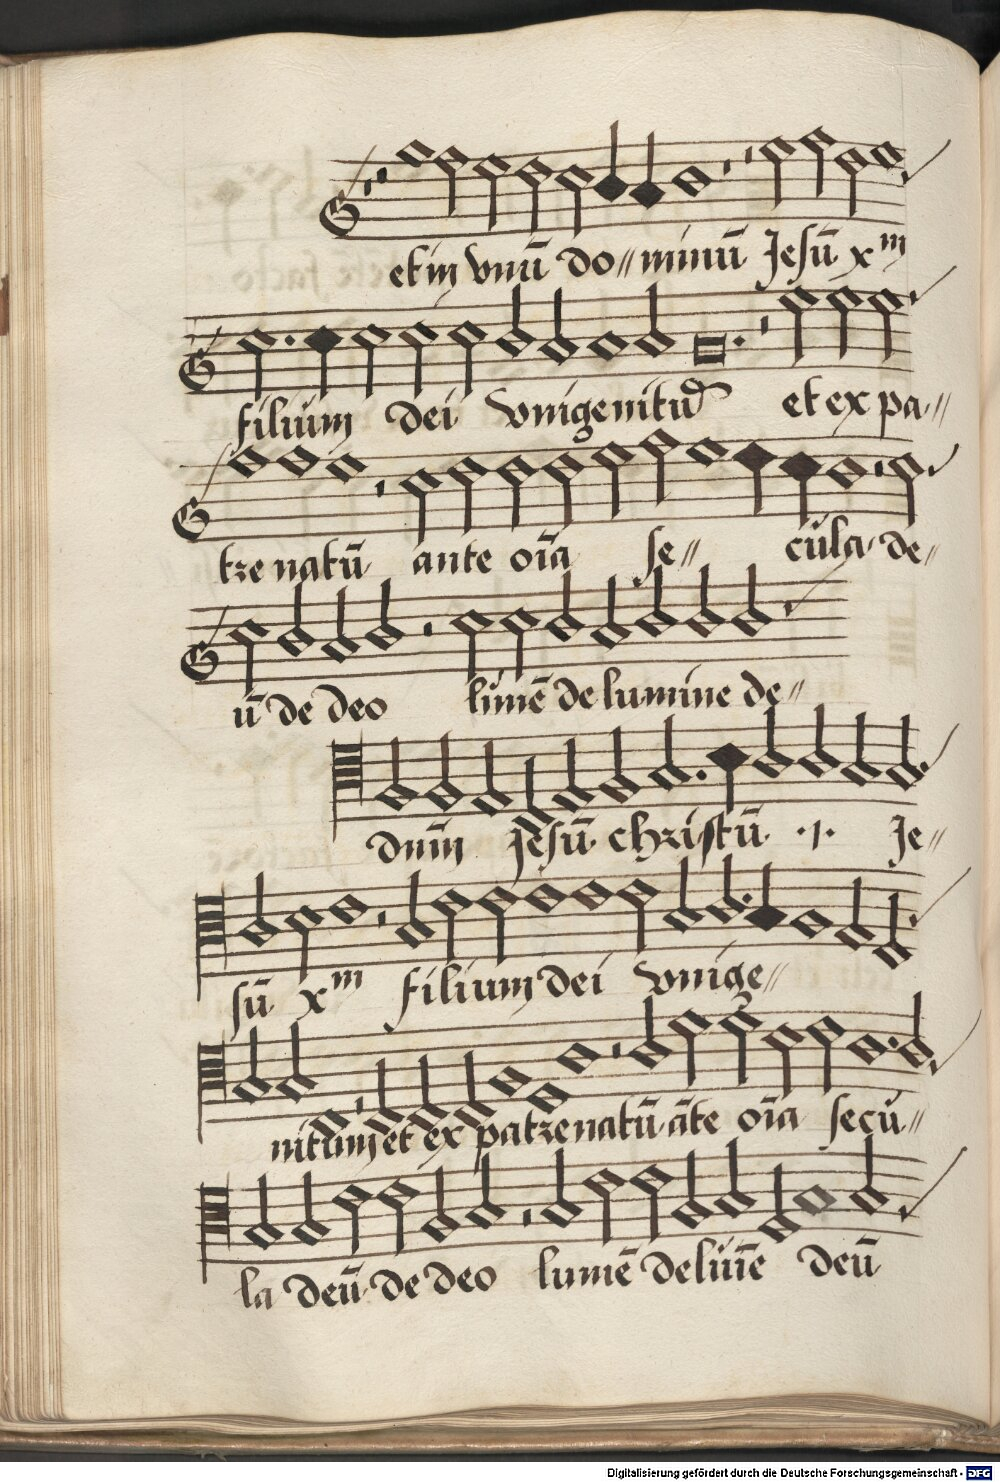 et in vnū do〃minū Jesū xm
filium dei vnigenitū et ex pa〃
tre natū ante oīa se〃 cula de〃
ū de deo lumē de lumine de〃
dnm̄ Jesū christū ·ı· Je〃
sū xm filium dei vnige〃
nitum et ex patre natū āte oīa secu〃
la deū de deo lumē de luīe deū
Digitalisierung gefördert durch die Deutsche Forschungsgemeinschaft - DFG